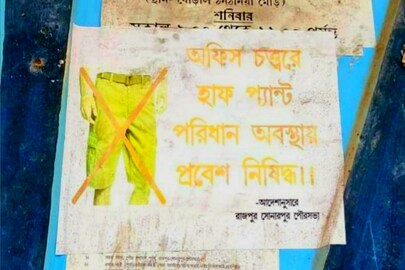 শনিবার
অফিস চত্ত্বরে
হাফ প্যান্ট
পরিধান অবস্থায়
প্রবেশ নিষিদ্ধ।।
-আদেশানুসারে
রাজপুর সোনারপুর পৌরসভা